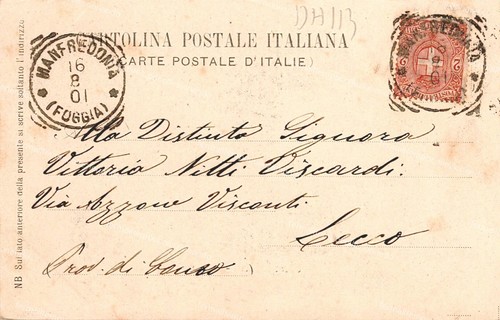 DH113
CARTOLINA POSTALE ITALIANA
(CARTE POSTALE D'ITALIE)
MANFREDONIA
16
8
01
(FOGGIA)
MANFREDONIA
01
2 2
NB Sul lato anteriore della presente si scrive soltanto l'indirizzo
Alla Distinta Signora
Vittoria Nitti Viscardi
Via Azzone Visconti
Lecco
Prov. di Como